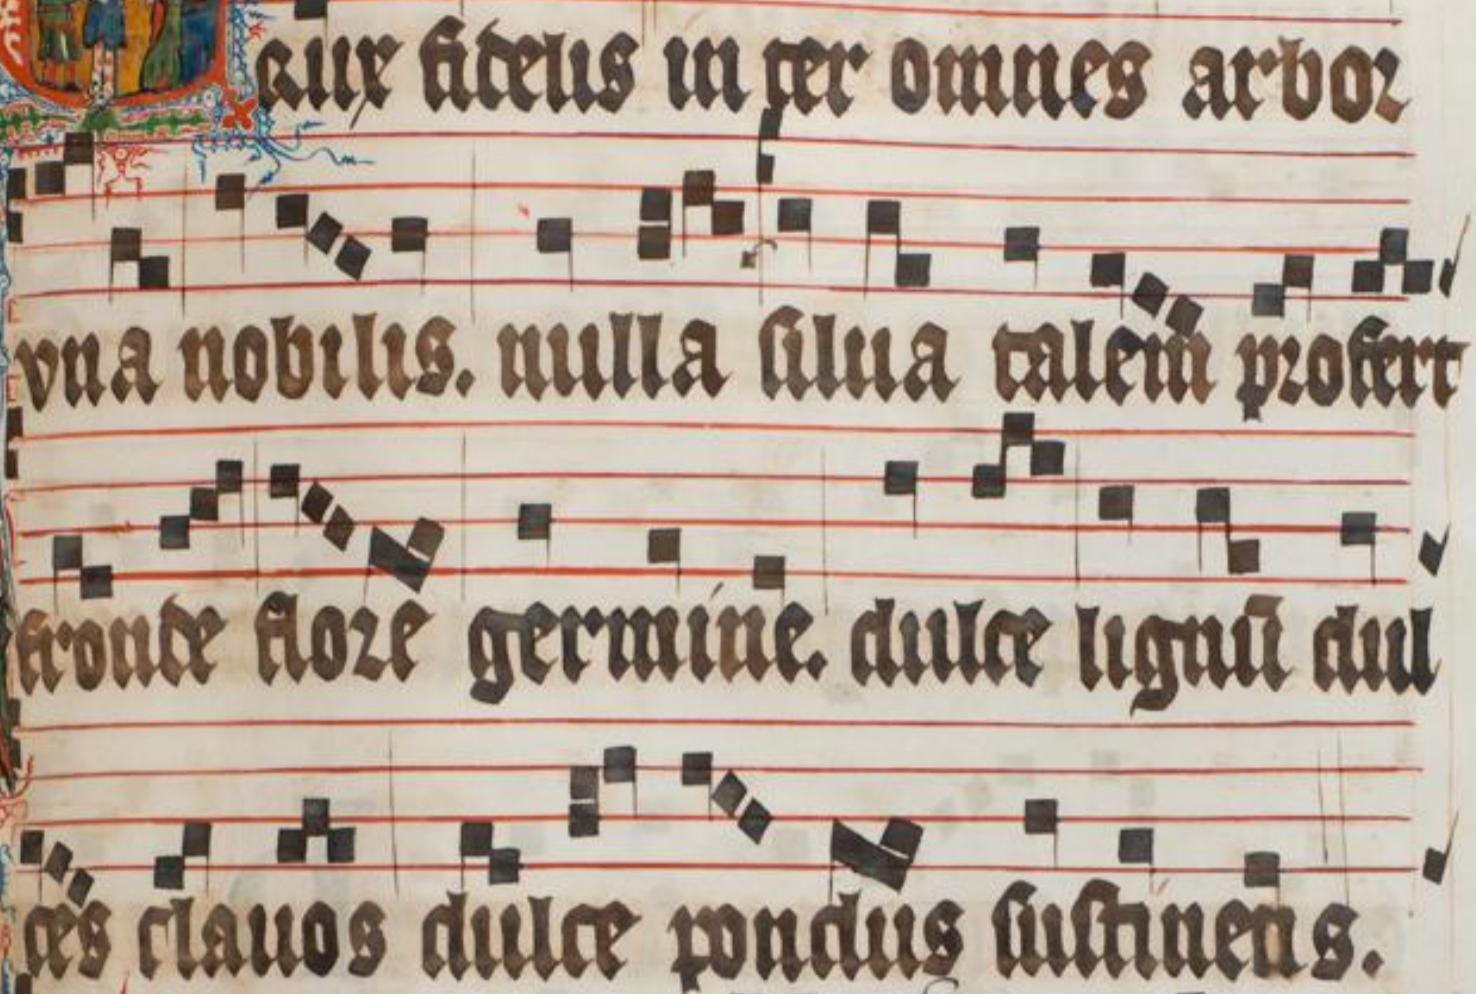 rux fidelis in ter omnes arbor
vna nobilis. nulla silua talem profert
fronde flore germine. dulce lignū dul
ces clauos dulce pondus sustinens.